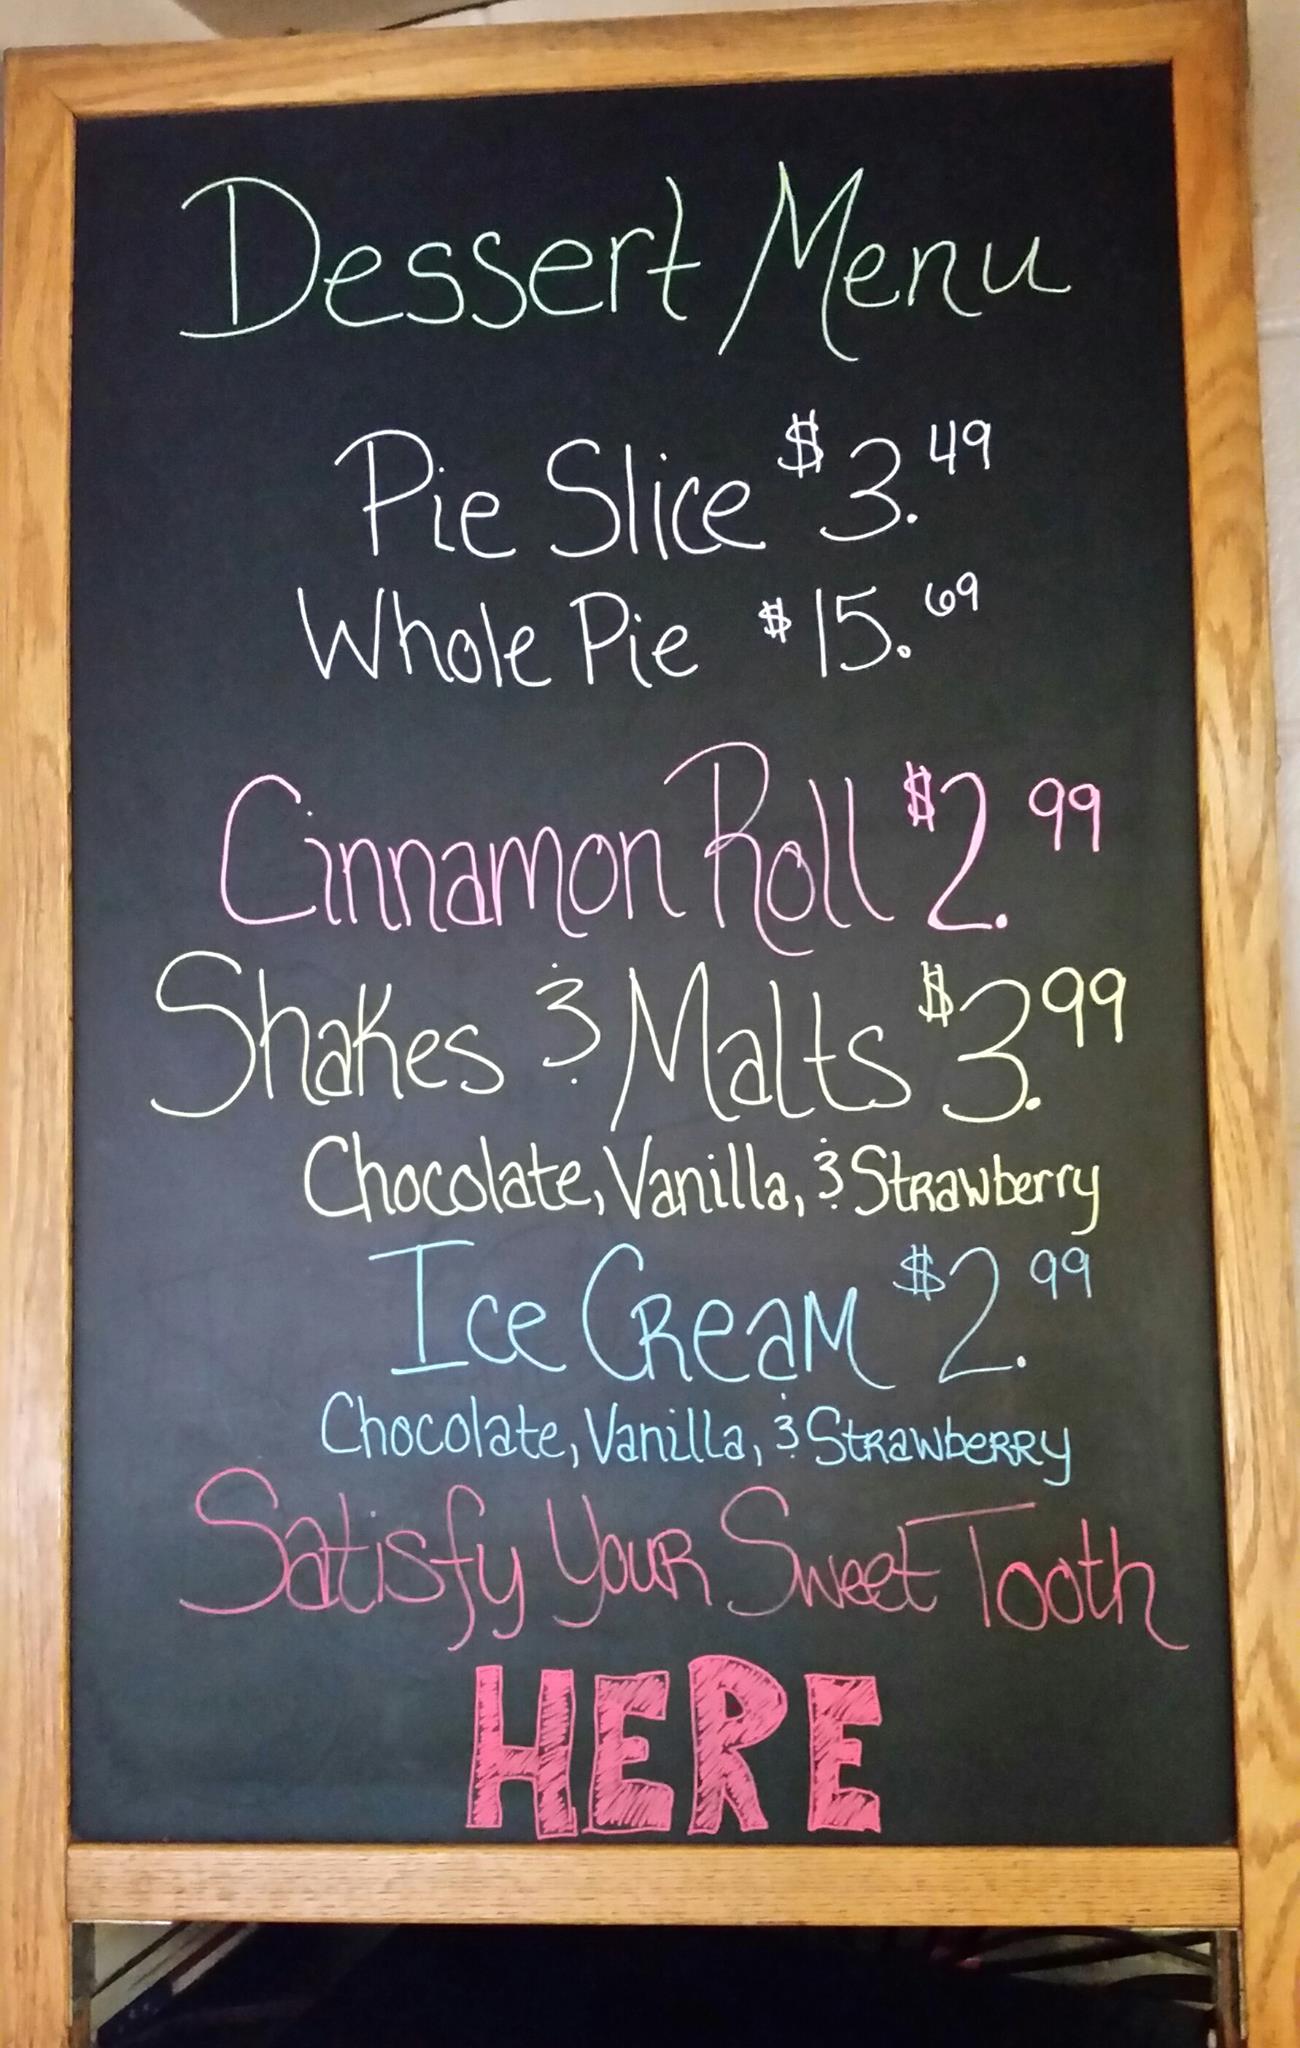 Dessert Menu
Pie Slice $3.49
Whole Pie $15.69
Cinnamon Roll $2.99
Shakes & Malts $3.99
Chocolate, Vanilla, & Strawberry
Ice Cream $2.99
Chocolate, Vanilla, & Strawberry
Satisfy Your Sweet Tooth
HERE